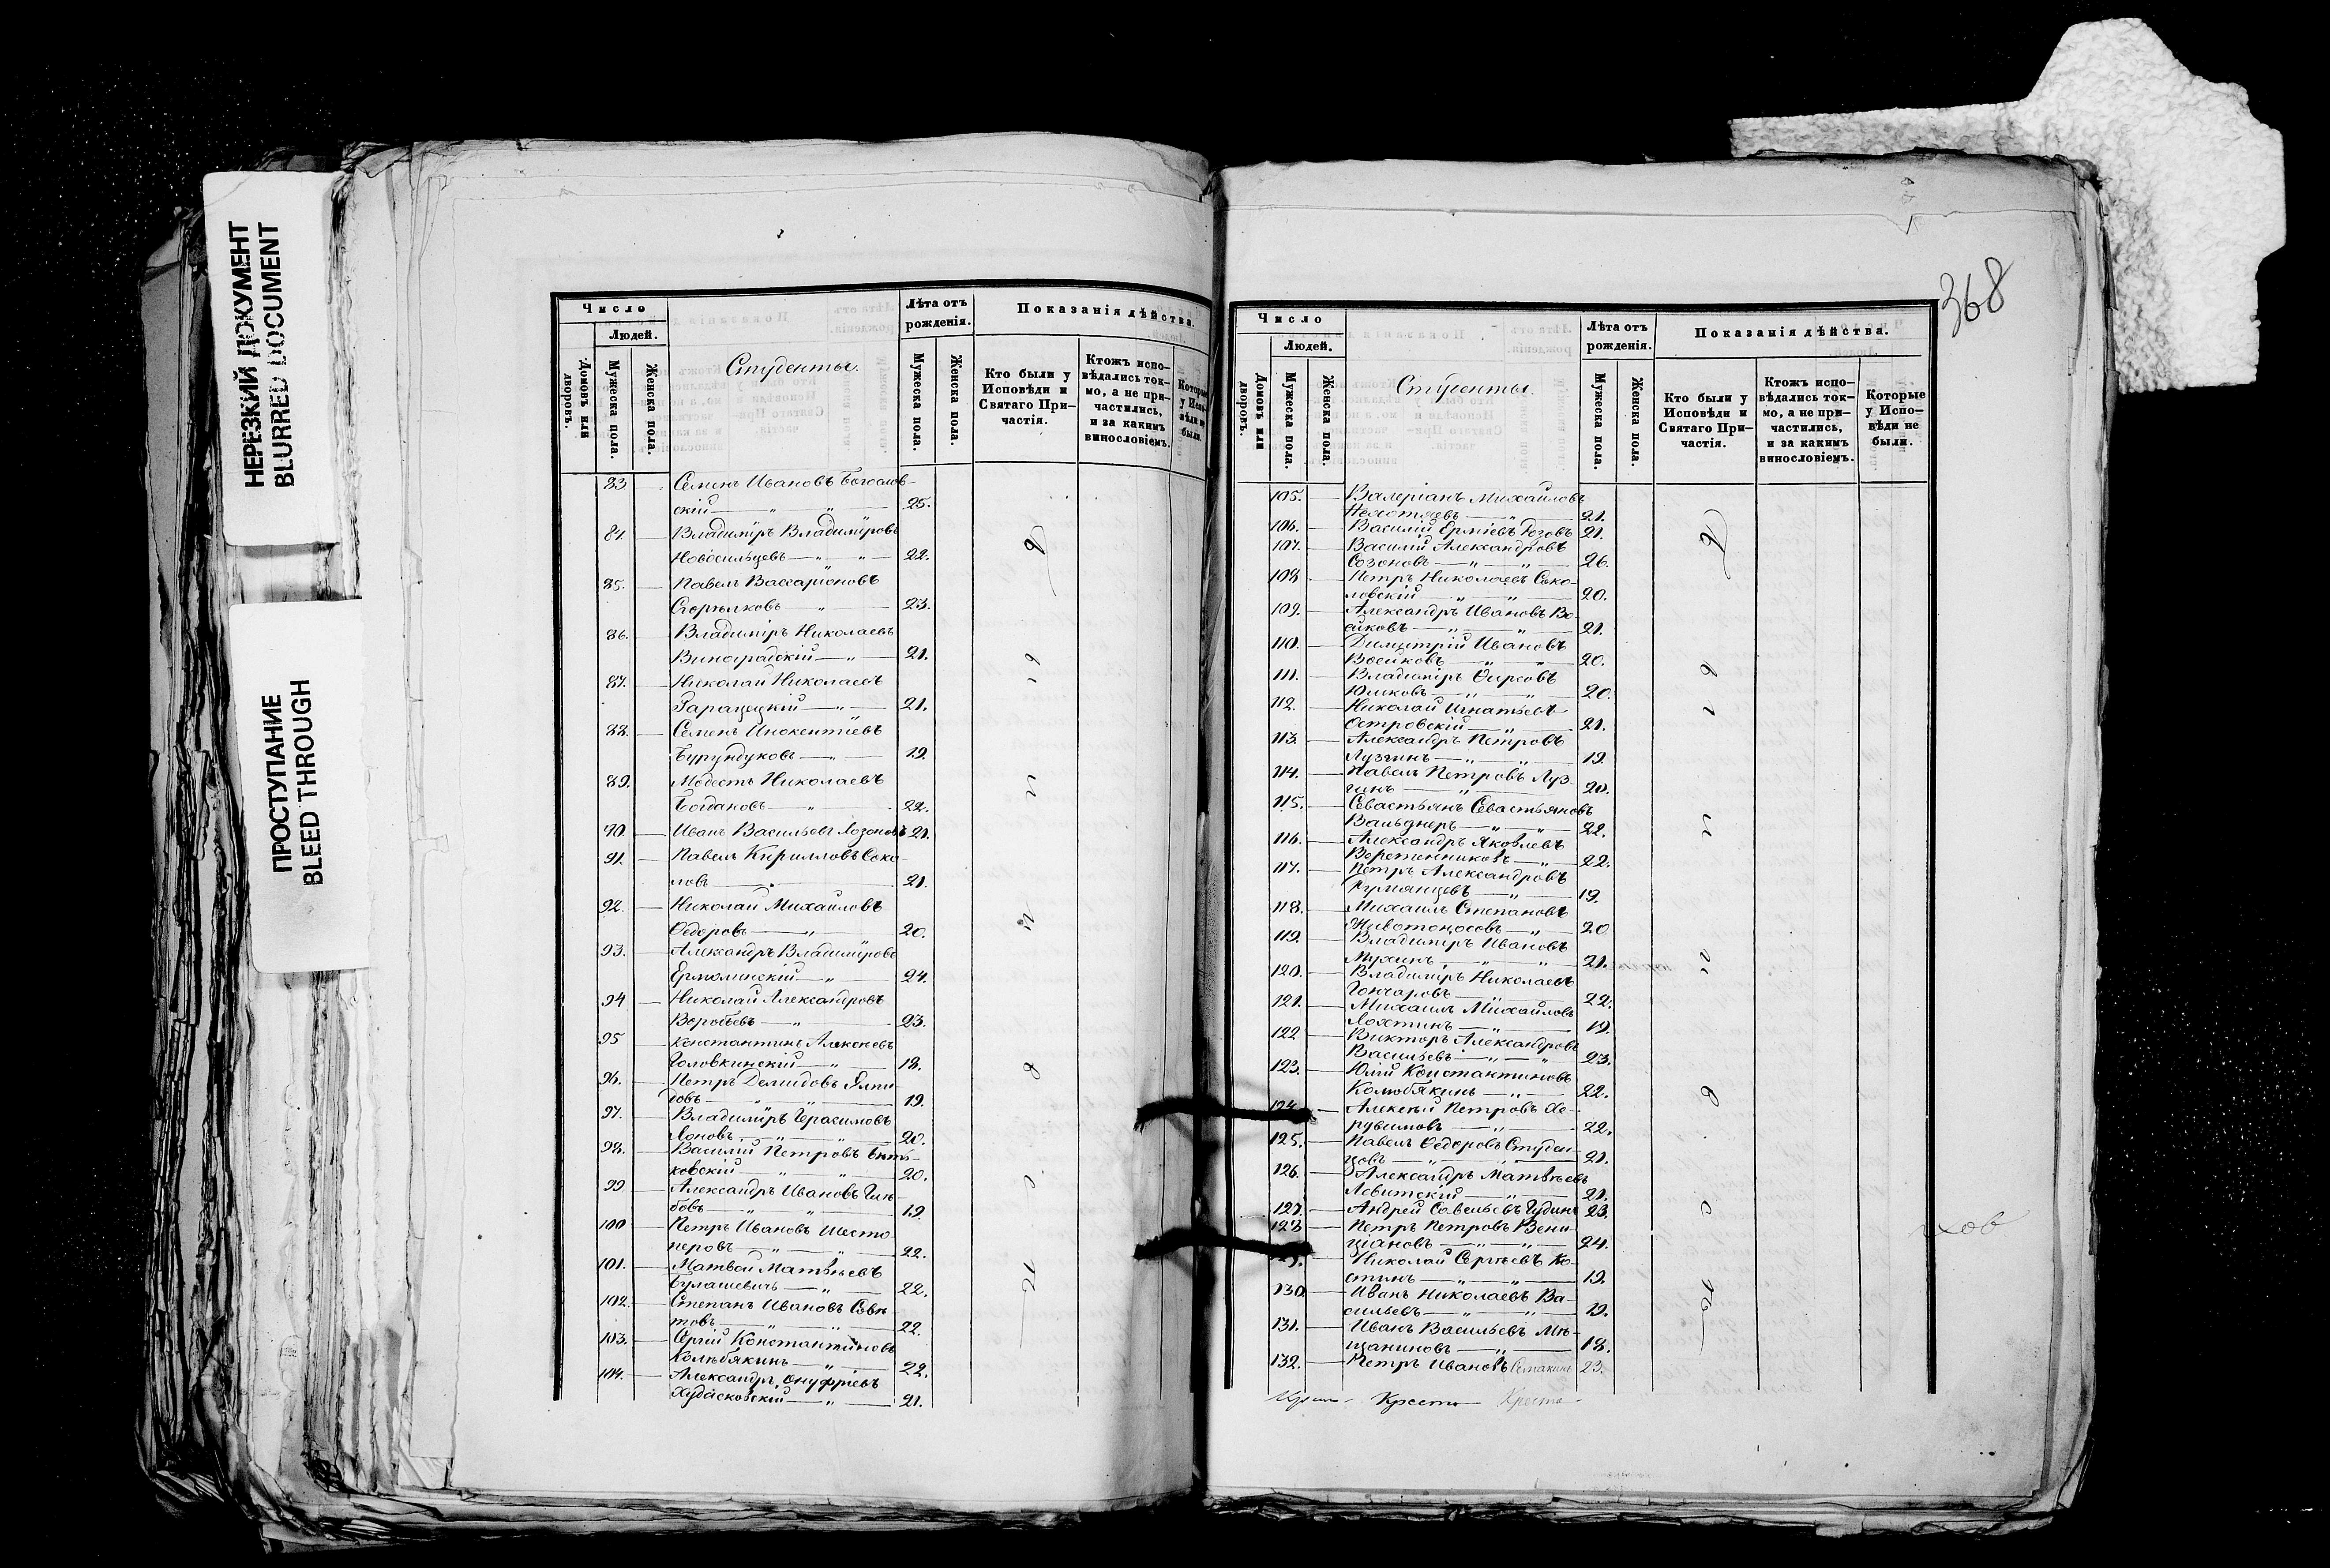 НЕРЕЗКИЙ ДОКУМЕНТ
BLURRED DOCUMENT
ПРОСТУПАНИЕ
BLEED THROUGH
Число
Людей.
Домовъ или дворовъ.
Мужеска пола.
Женска пола.
Студенты.
Лѣта отъ рожденія.
Мужеска пола.
Женска пола.
Показанія дѣйства.
Кто были у Исповѣди и Святаго Причастія.
Ктожъ исповѣдались токмо, а не причастились, и за какимъ винословіемъ.
Которые у Исповѣди не были.
83 Семенъ Ивановъ Богослов-
скій 25.
84. Владиміръ Владиміровъ
Новосильцевъ 22.
85. Павелъ Вассаріоновъ
23.
86. Владиміръ Николаевъ
Виноградскій 21.
87. Николай Николаевъ
21.
88. Семенъ Инокентіевъ
Бурундуковъ 19.
89. Модестъ Николаевъ
Богдановъ 22.
90. Иванъ Васильевъ 21.
91. Павелъ Кирилловъ Соко-
ловъ 21.
92. Николай Михайловъ
Ѳедоровъ 20.
93. Александръ Владиміровъ
Ермолинскій 24.
94 Николай Александровъ
Воробьевъ 23.
95 Константинъ Алексѣевъ
Головкинскій 18.
96. Петръ Демидовъ
19.
97. Владиміръ Герасимовъ
20.
98. Василій Петровъ
ковскій 20.
99 Александръ Ивановъ Глѣ-
бовъ 19
100 Петръ Ивановъ Шесто-
перовъ 22.
101. Матвѣй Матвѣевъ
Булашевичъ 22.
102. Степанъ Ивановъ Совѣ-
товъ 22.
103. Сергій Константиновъ
Колюбякинъ 22.
104. Александръ Онуфріевъ
21.
368
Число
Людей.
Домовъ или дворовъ.
Мужеска пола.
Женска пола.
Студенты.
Лѣта отъ рожденія.
Мужеска пола.
Женска пола.
Показанія дѣйства.
Кто были у Исповѣди и Святаго Причастія.
Ктожъ исповѣдались токмо, а не причастились, и за какимъ винословіемъ.
Которые у Исповѣди не были.
105. Валеріанъ Михайловъ
21.
106. Василій Ерміевъ Розовъ 21.
107. Василій Александровъ
Созоновъ 26.
108 Петръ Николаевъ Соко-
ловскій 20.
109. Александръ Ивановъ Во-
ейковъ 21.
110. Димитрій Ивановъ
Воейковъ 20.
111. Владиміръ Фирсовъ
Юшковъ 20.
112. Николай Игнатьевъ
Островскій 21.
113. Александръ Петровъ
Лузгинъ 19
114. Павелъ Петровъ Луз-
гинъ 20.
115. Севастьянъ Севастьяновъ
Вальднеръ 22.
116. Александръ Яковлевъ
Веретенниковъ 22.
117. Петръ Александровъ
Румянцевъ 19.
118. Михаилъ Степановъ
Животоносовъ 20
119. Владиміръ Ивановъ
Мухинъ 21.
120. Владиміръ Николаевъ
Гончаровъ 22.
121. Михаилъ Михайловъ
Лохтинъ 19.
122 Викторъ Александровъ
Васильевъ 23.
123. Юлій Константиновъ
Колюбякинъ 22.
124 Алексѣй Петровъ Хе-
рувимовъ 22.
125. Павелъ Ѳедоровъ Студен-
цовъ 21.
126. Александръ Матвѣевъ
Левитскій 21.
127 Андрей Савельевъ Чудинъ 23.
128 Петръ Петровъ Вени-
ціановъ 24.
Николай Сергѣевъ Ко-
стинъ 19.
130 Иванъ Николаевъ Ва-
сильевъ 19.
131. Иванъ Васильевъ Мѣ-
щаниновъ 18.
132. Петръ Ивановъ 23.